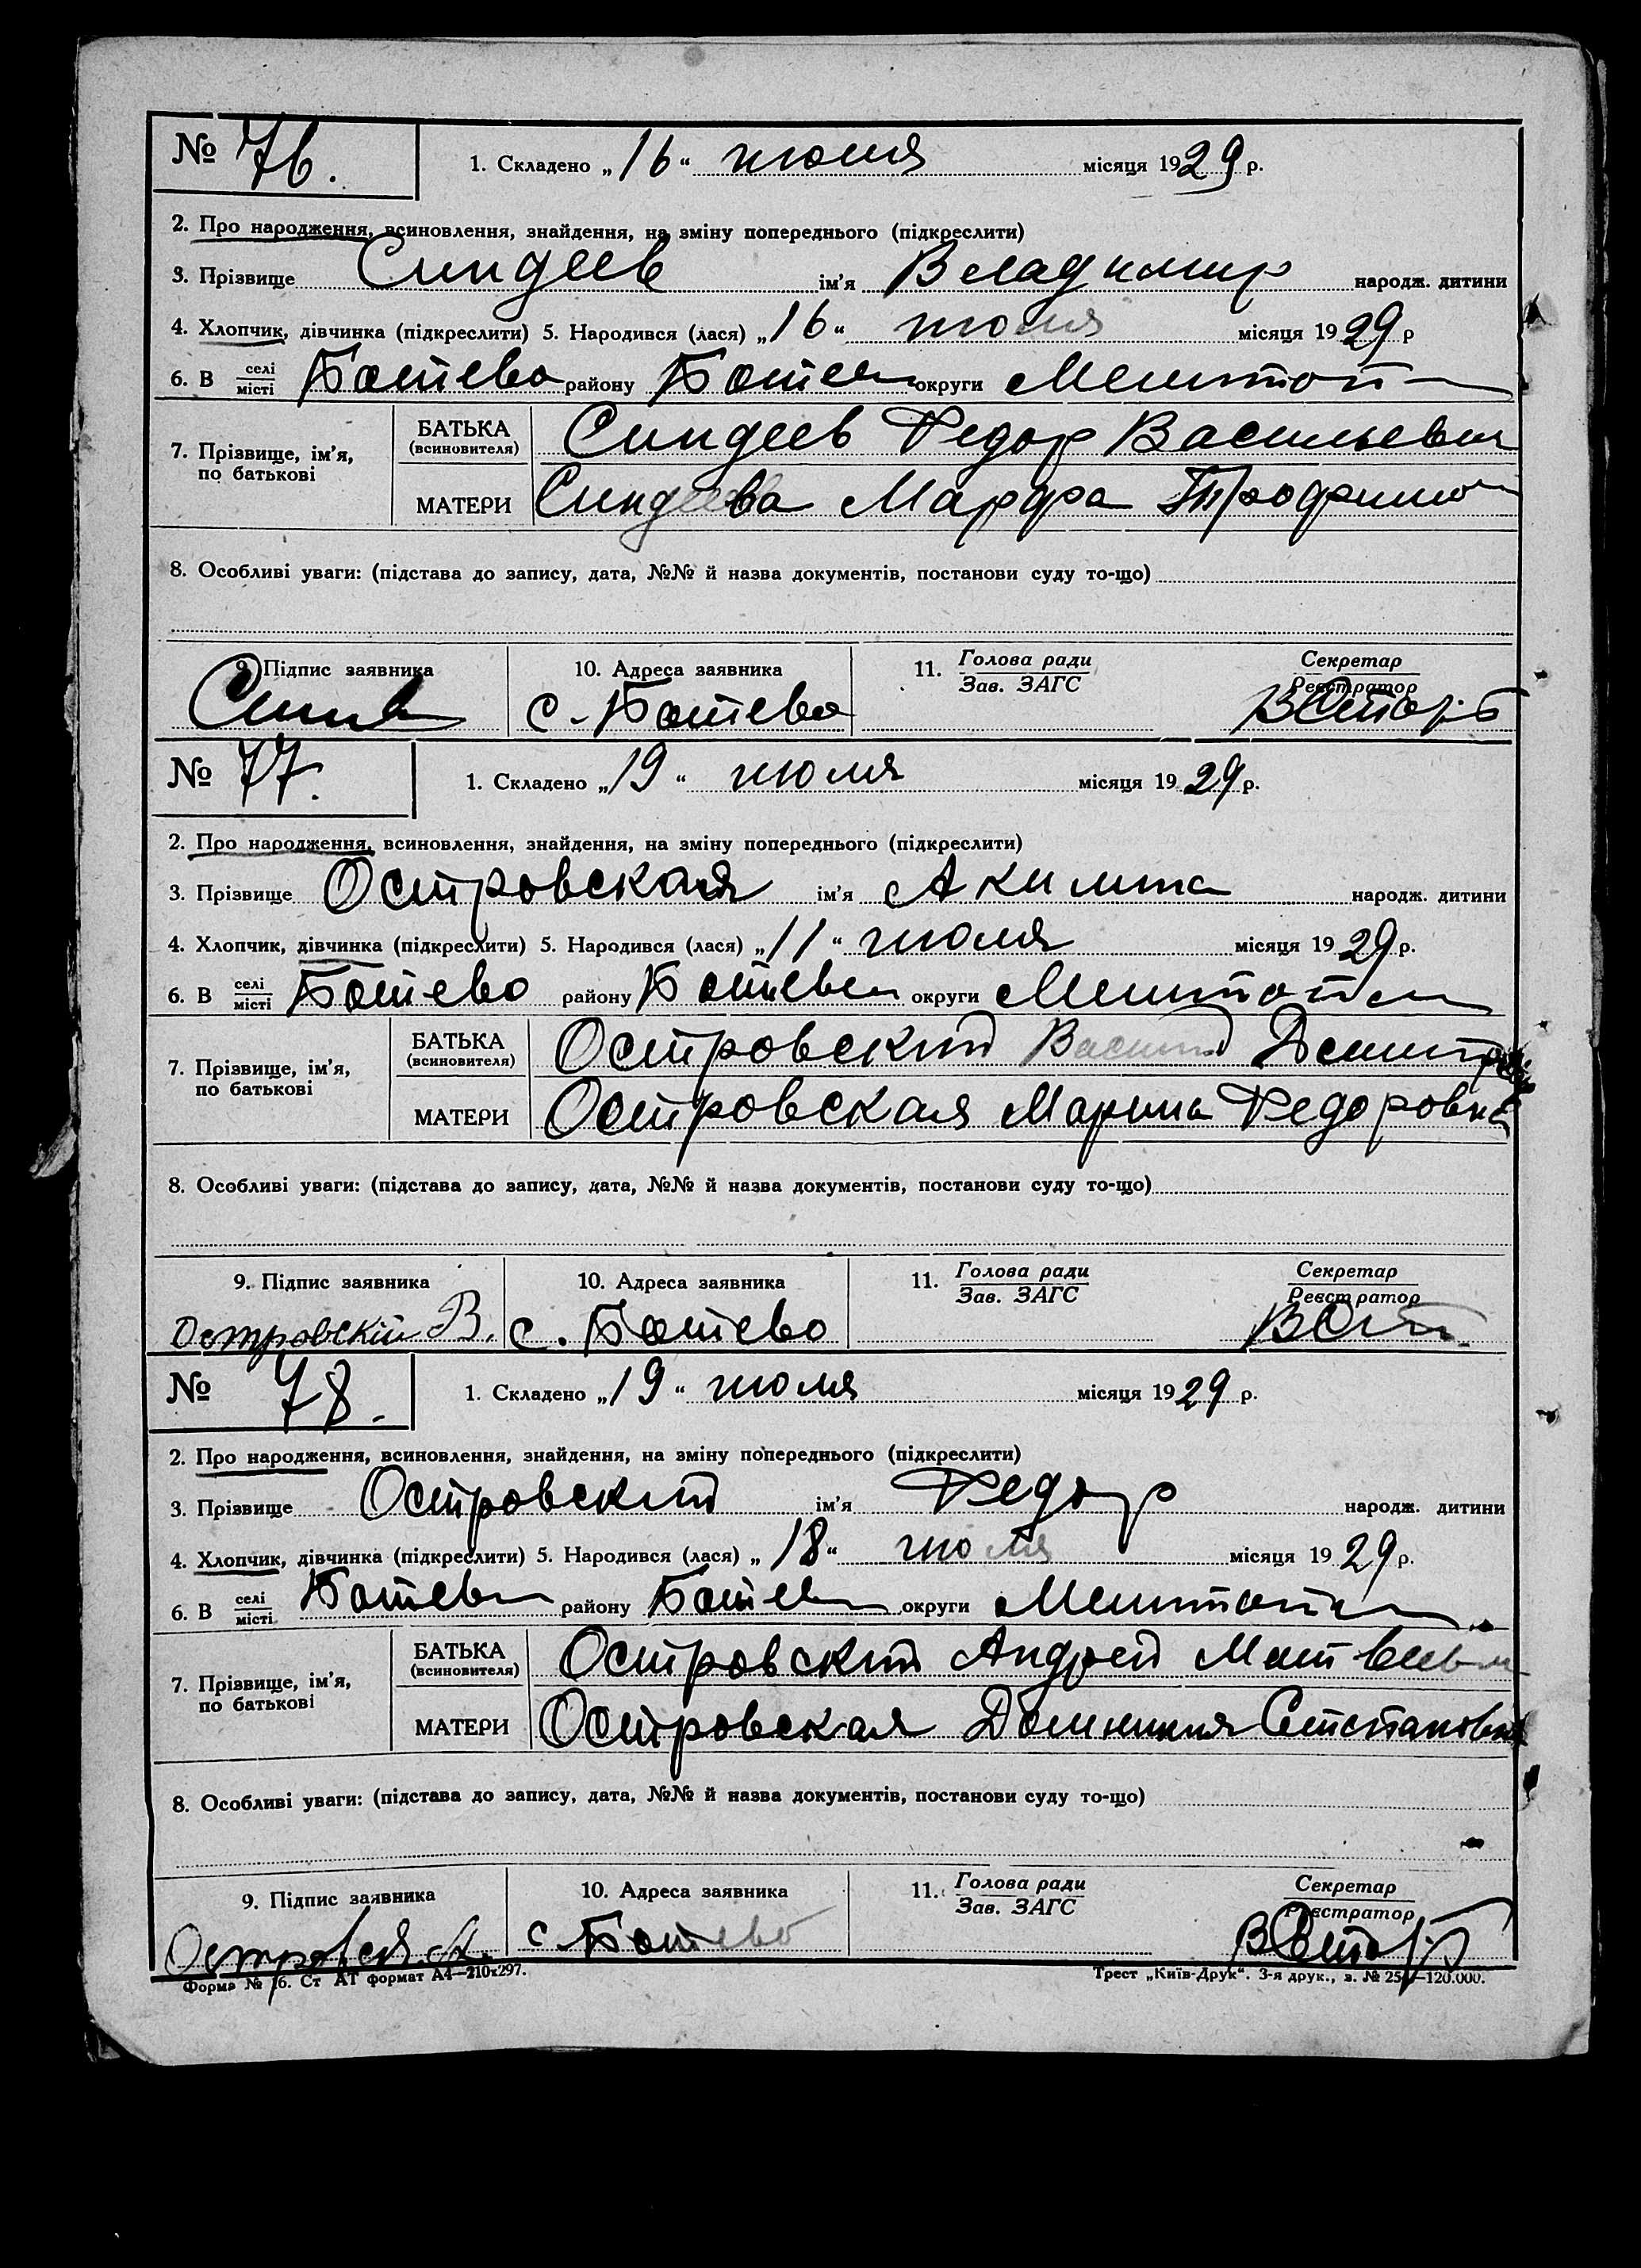 № 76.
1. Складено „16“ июля місяця 1929 р.
2. Про народження, всиновлення, знайдення, на зміну попереднього (підкреслити)
3. Прізвище Синдеев ім'я Владимир народж. дитини
4. Хлопчик, дівчинка (підкреслити) 5. Народився (лася) „16“ июля місяця 1929 р
6. В селі місті Ботево району Ботев округи Мелитоп
7. Прізвище, ім'я, по батькові
БАТЬКА (всиновителя) Синдеев Федор Васильевич
МАТЕРИ Синдеева Марфа Трофимо
8. Особливі уваги: (підстава до запису, дата, №№ й назва документів, постанови суду то-що)
9. Підпис заявника 10. Адреса заявника 11. Голова ради Зав. ЗАГС Секретар Реєстратор
с. Ботево
№ 77.
1. Складено „19“ июля місяця 1929 р.
2. Про народження, всиновлення, знайдення, на зміну попереднього (підкреслити)
3. Прізвище Островская ім'я Акилина народж. дитини
4. Хлопчик, дівчинка (підкреслити) 5. Народився (лася) „11“ июля місяця 1929 р.
6. В селі місті Ботево району Ботев округи Мелитоп
7. Прізвище, ім'я, по батькові
БАТЬКА (всиновителя) Островский Василий Дмитр
МАТЕРИ Островская Марина Федоровна
8. Особливі уваги: (підстава до запису, дата, №№ й назва документів, постанови суду то-що)
9. Підпис заявника 10. Адреса заявника 11. Голова ради Зав. ЗАГС Секретар Реєстратор
Островскій В. с. Ботево
№ 78.
1. Складено „19“ июля місяця 1929 р.
2. Про народження, всиновлення, знайдення, на зміну попереднього (підкреслити)
3. Прізвище Островский ім'я Федор народж. дитини
4. Хлопчик, дівчинка (підкреслити) 5. Народився (лася) „18“ июля місяця 1929 р.
6. В селі місті Ботев району Ботев округи Мелитоп
7. Прізвище, ім'я, по батькові
БАТЬКА (всиновителя) Островский Андрей Матвеев
МАТЕРИ Островская Домникия Степановна
8. Особливі уваги: (підстава до запису, дата, №№ й назва документів, постанови суду то-що)
9. Підпис заявника 10. Адреса заявника 11. Голова ради Зав. ЗАГС Секретар Реєстратор
с. Ботево
Форма № 16. Ст АТ формат А4—210x297. Трест „Київ-Друк“. 3-я друк., з. № —120.000.